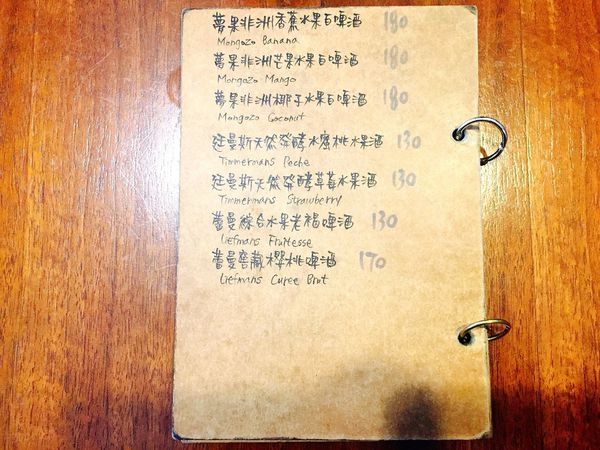 夢果非洲香蕉水果白啤酒 180
Mongozo Banana
夢果非洲芒果水果白啤酒 180
Mongozo Mango
夢果非洲椰子水果白啤酒 180
Mongozo Coconut
廷曼斯天然發酵水蜜桃水果酒 130
Timmermans Peche
廷曼斯天然發酵草莓水果酒 130
Timmermans Strawberry
蕾曼綜合水果老褐啤酒 130
Liefmans Fruitesse
蕾曼窖藏櫻桃啤酒 170
Liefmans Cuvee Brut